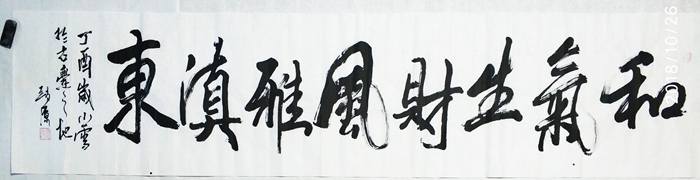 和氣生財風雅滇東
丁酉歲小雪
於古爨之地
2018/10/26